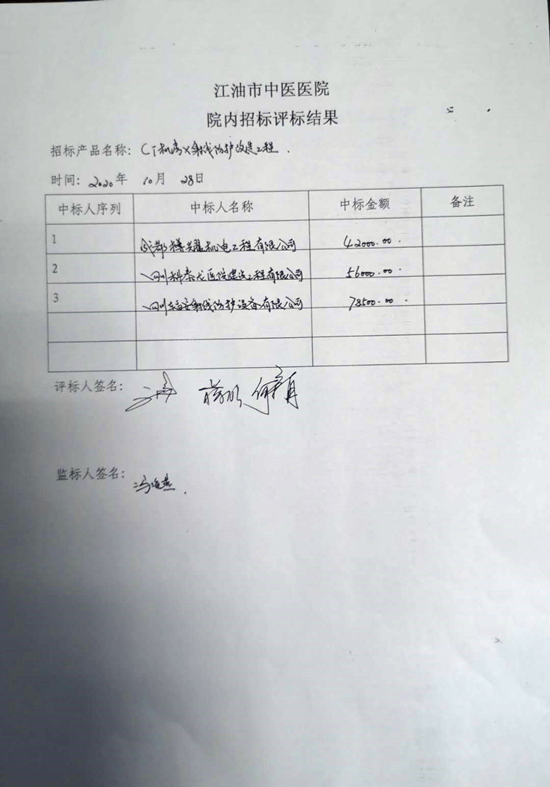 江油市中医医院
院内招标评标结果
招标产品名称：CT机房X射线防护改建工程.
时间：2020年 10月 28日
中标人序列 中标人名称 中标金额 备注
1 成都 耀机电工程有限公司 42000.00.
2 四川 医院建设工程有限公司 56000.00
3 四川 射线防护设备有限公司 78500.00
评标人签名：
监标人签名：